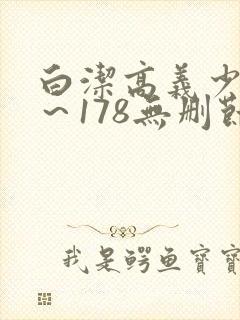 白潔高義少
～178無刪節
我是鳄鱼寶寶